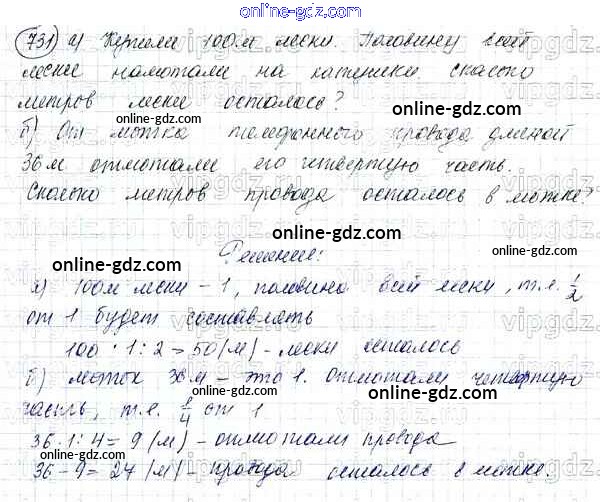 online-gdz.com
731) а) Купили 100 м лески. Половину всей
лески намотали на катушки. Сколько
метров лески осталось?
online-gdz.com
б) От мотка телефонного провода длиной
36 м отмотали его четвертую часть.
online-gdz.com
Сколько метров провода осталось в мотке?
online-gdz.com
Решение:
online-gdz.com
а) 100 м лески – 1, половина всей лески, т.е. 1/2
от 1 будет составлять
online-gdz.com
100 · 1 : 2 = 50 (м) – лески осталось
б) моток 36 м – это 1. отмотали четвертую
online-gdz.com
часть, т.е. 1/4 от 1
36 · 1 : 4 = 9 (м) – отмотали провода
36 – 9 = 27 (м) – провода осталось в мотке.
online-gdz.com